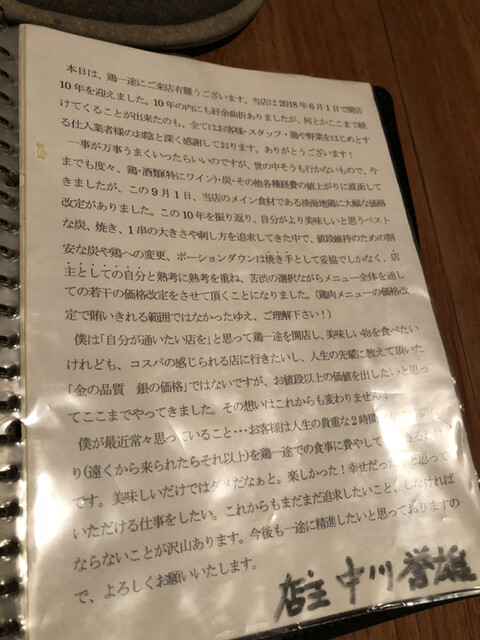 本日は、鶏一途にご来店有難うございます。当店は2018年6月1日で開店
10年を迎えました。10年の内にも紆余曲折ありましたが、何とかここまで続
けてくることが出来たのも、全てはお客様・スタッフ・鶏や野菜をはじめとす
る仕入業者様のお陰と深く感謝しております。ありがとうございます！
一事が万事うまくいったらいいのですが、世の中そうも行かないもので、今
までも度々、鶏・酒類(特にワイン)・炭・その他各種経費の値上がりに直面して
きましたが、この9月1日、当店のメイン食材である淡海地鶏に大幅な価格
改定がありました。この10年を振り返り、自分がより美味しいと思うベスト
な炭、焼き、1串の大きさや刺し方を追求してきた中で、値段維持のための割
安な炭や鶏への変更、ポーションダウンは焼き手として妥協でしかなく、店
主としての自分と熟考に熟考を重ね、苦渋の選択ながらメニュー全体を通し
ての若干の価格改定をさせて頂くことになりました。(鶏肉メニューの価格改
定で賄いきれる範囲ではなかったゆえ、ご理解下さい！)
僕は「自分が通いたい店を」と思って鶏一途を開店し、美味しい物を食べたい
けれども、コスパの感じられる店に行きたいし、人生の先輩に教えて頂いた
「金の品質　銀の価格」ではないですが、お値段以上の価値を出したいと思っ
てここまでやってきました。その想いはこれからも変わりません！
僕が最近常々思っていること・・・お客様は人生の貴重な2時間
り(遠くから来られたらそれ以上)を鶏一途での食事に費やして
です。美味しいだけではダメだなぁと。楽しかった！幸せだった 思って
いただける仕事をしたい。これからもまだまだ追求したいこと、しなければ
ならないことが沢山あります。今後も一途に精進したいと思っておりますの
で、よろしくお願いいたします。
店主 中川 誉雄